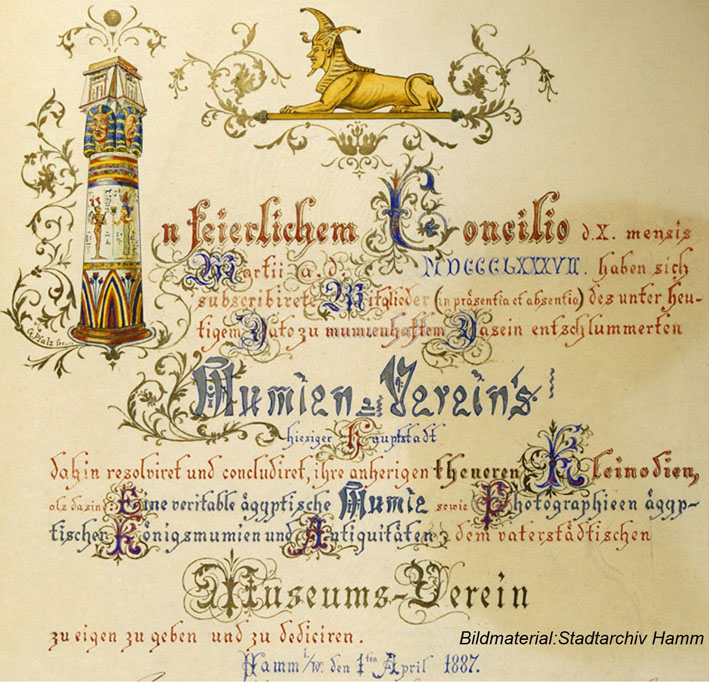 In feierlichem Concilio d. X. mensis
Martii a. d. MDCCCLXXXVII. haben sich
subscribirete Mitglieder (in präsentia et absentia) des unter heu-
tigem Dato zu mumienhaftem Dasein entschlummerten
Mumien-Verein's
hiesiger Hauptstadt
dahin resolviret und concludiret, ihre anherigen theueren Kleinodien,
als da sind: Eine veritable ägyptische Mumie sowie Photographieen ägyp-
tischer Königsmumien und Antiquitäten, dem vaterstädtischen
Museums-Verein
zu eigen zu geben und zu dediciren.
Hamm i/W. den 1ten April 1887.
Bildmaterial:Stadtarchiv Hamm